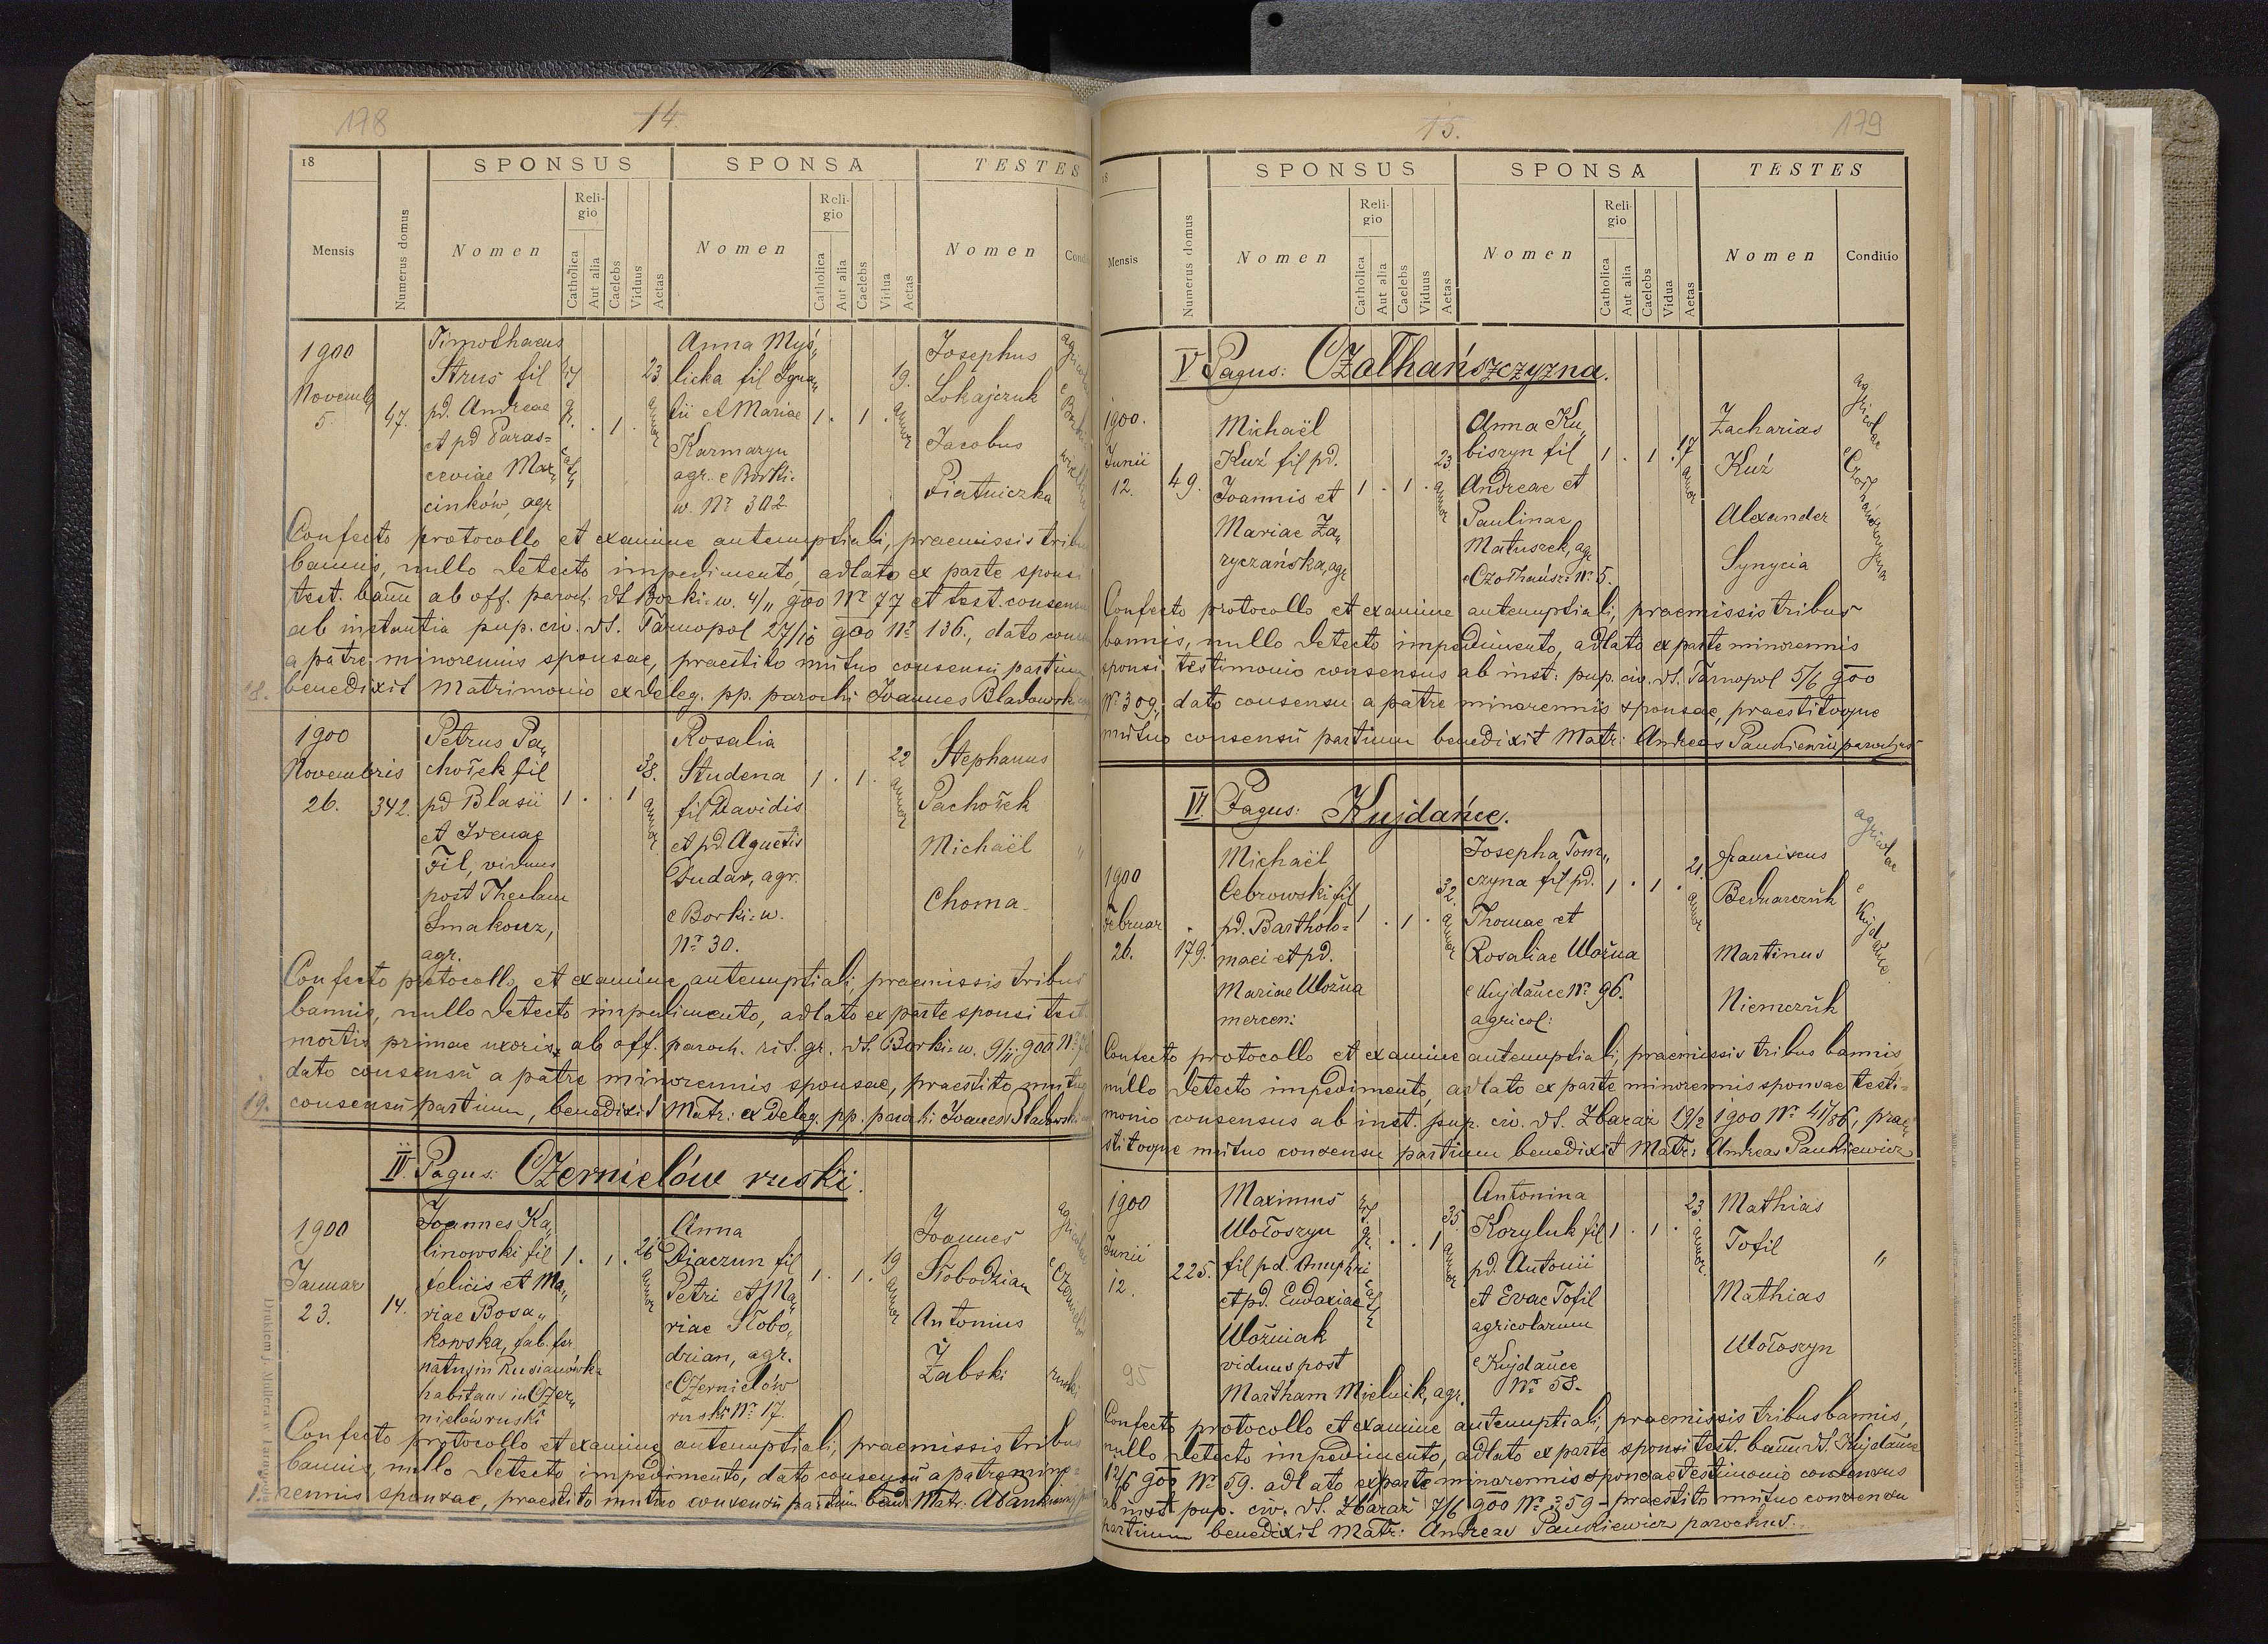 178
14.
18
SPONSUS
SPONSA
TESTES
Mensis
Numerus domus
Nomen
Religio
Catholica
Aut alia
Caelebs
Viduus
Aetas
Nomen
Religio
Catholica
Aut alia
Caelebs
Vidua
Aetas
Nomen
1900
Novemb
5.
47.
Timothaeus
Strus fil
pd. Andreae
et pd Paras=
ceviae Mar„
cinków, agr
1
23
annor
Anna Myś„
licka fil Igna„
tii et Mariae
Karmazyn
agr. e Borki-
w. Nr 302
1 . 1 .
19.
annor
Josephus
Lokajczuk
Jacobus
Piatniczka
Confecto protocollo et examine antenuptiali, praemissis tribus
bannis, nullo detecto impedimento, adlato ex parte sponsi
test. bann ab off. paroch. dt Borki-w. 4/11 900 Nr 77 et test. consensus
ab instantia pup. civ. dt. Tarnopol 27/10 900 Nr 136., dato
a patre minorennis sponsae, praestito mutuo consensu partium
18. benedixit Matrimonio ex deleg. pp. parochi Joannes Bladowski
1900
Novembris
26.
342.
Petrus Pa„
chołek fil
pd Blasii
et Irenae
Fil, viduus
post Theclam
Smakosz,
agr.
1 . . 1
38.
annor
Rosalia
Studena
fil Davidis
et pd Agnetis
Dudar, agr.
e Borki-w.
Nr 30.
1 . 1 .
22
annor
Stephanus
Pachołek
Michaël
Choma
Confecto protocollo et examine antenuptiali, praemissis tribus
bannis, nullo detecto impedimento, adlato ex parte sponsi test.
mortis primae uxoris, ab off. paroch. rit. gr. dt. Borki-w. 9/11 900 Nr
dato consensu a patre minorennis sponsae, praestito mutuo
19. consensu partium, benedixit Matr: ex deleg. pp. parochi Joannes Bladowski
IV. Pagus: Czernielów ruski.
1900
Januar
23.
14.
Joannes Ka„
linowski fil
felicis et Ma„
riae Bosa„
kowska, fab. fer
natus in Rusianówka
habitans in Czer„
nielów ruski
1 . 1 .
26
annor
Anna
Diaczun fil
Petri et Ma„
riae Słobo„
dzian, agr.
e Czernielów
ruski Nr 17.
1 . 1 .
19
annor
Joannes
Słobodzian
Antonius
Żabski
agricolae
e Czernielów
ruski
Confecto protocollo et examine antenuptiali, praemissis tribus
bannis, nullo detecto impedimento, dato consensu a patre mino=
1. rennis sponsae, praestito mutuo consensu partium bened. Matr:
179
15.
18
SPONSUS
SPONSA
TESTES
Mensis
Numerus domus
Nomen
Religio
Catholica
Aut alia
Caelebs
Viduus
Aetas
Nomen
Religio
Catholica
Aut alia
Caelebs
Vidua
Aetas
Nomen
Conditio
V. Pagus: Czołhańszczyzna.
1900.
Junii
12.
49.
Michaël
Kuź fil pd.
Joannis et
Mariae Za„
ryczańska, agr
1 . 1 .
23
annor
Anna Ku„
biszyn fil
Andreae et
Paulinae
Matuszek, agr
e Czołhańsz: Nr 5.
1 . 1 .
17
annor
Zacharias
Kuź
Alexander
Synycia
agricolae
e Czołhańszczyzna
Confecto protocollo et examine antenuptiali, praemissis tribus
bannis, nullo detecto impedimento, adlato ex parte minorennis
sponsi testimonio consensus ab inst: pup. civ. dt. Tarnopol 5/6 900
Nr 309, dato consensu a patre minorennis sponsae, praestitoque
mutuo consensu partium benedixit Matr: Andreas Pankiewicz parochus
VI. Pagus: Kujdańce.
1900
Februar
26.
179.
Michaël
Cebrowski fil
pd. Bartholo=
maei et pd.
Mariae Woźna
mercen:
1 . 1 .
32.
annor
Josepha Tom„
czyna fil pd.
Thomae et
Rosaliae Woźna
e Kujdańce Nr 96.
agricol:
1 . 1 .
21.
annor
Franciscus
Bednarczuk
Martinus
Niemczuk
agricolae
e Kujdańce
Confecto protocollo et examine antenuptiali, praemissis tribus bannis
nullo detecto impedimento, adlato ex parte minorennis sponsae testi=
monio consensus ab inst. pup. civ. dt. Zbaraż 19/2 1900 Nr 41/86, prae„
stitoque mutuo consensu partium benedixit Matr: Andreas Pankiewicz
1900
Junii
12.
225.
Maximus
Wołoszyn
fil pd. Amphri
et pd. Eudoxiae
Woźniak
viduus post
Martham Mielnik, agr.
1
35
annor
Antonina
Koryluk fil
pd. Antonii
et Evae Tofil
agricolarum
e Kujdańce
Nr 58.
1 . 1 .
23
annor.
Mathias
Tofil
Mathias
Wołoszyn
„
95
Confecto protocollo et examine antenuptiali, praemissis tribus bannis,
nullo detecto impedimento, adlato ex parte sponsi test. bann dt. Kujdańce
12/6 900 Nr 59. adlato ex parte minorennis sponsae testimonio consensus
ab inst pup. civ. dt. Zbaraż 7/6 900 Nr 359 - praestito mutuo consensu
partium benedixit Matr: Andreas Pankiewicz parochus.